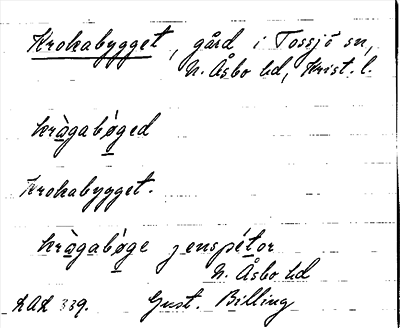 Krokabygget, gård i Tossjö sn,
N. Åsbo hd, Krist. l.
kràgabø̀ged
Krokabygget.
kràgabø̀ge jenspétor
N. Åsbo hd
LAL 339. Gust. Billing